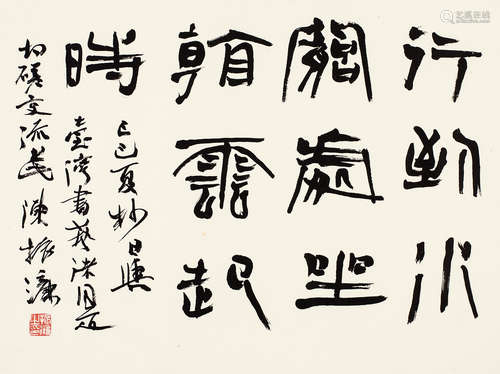 行到水
窮處坐
看雲起
時
己巳夏杪日與
臺灣書藝諸同道
切磋交流 陳振濂